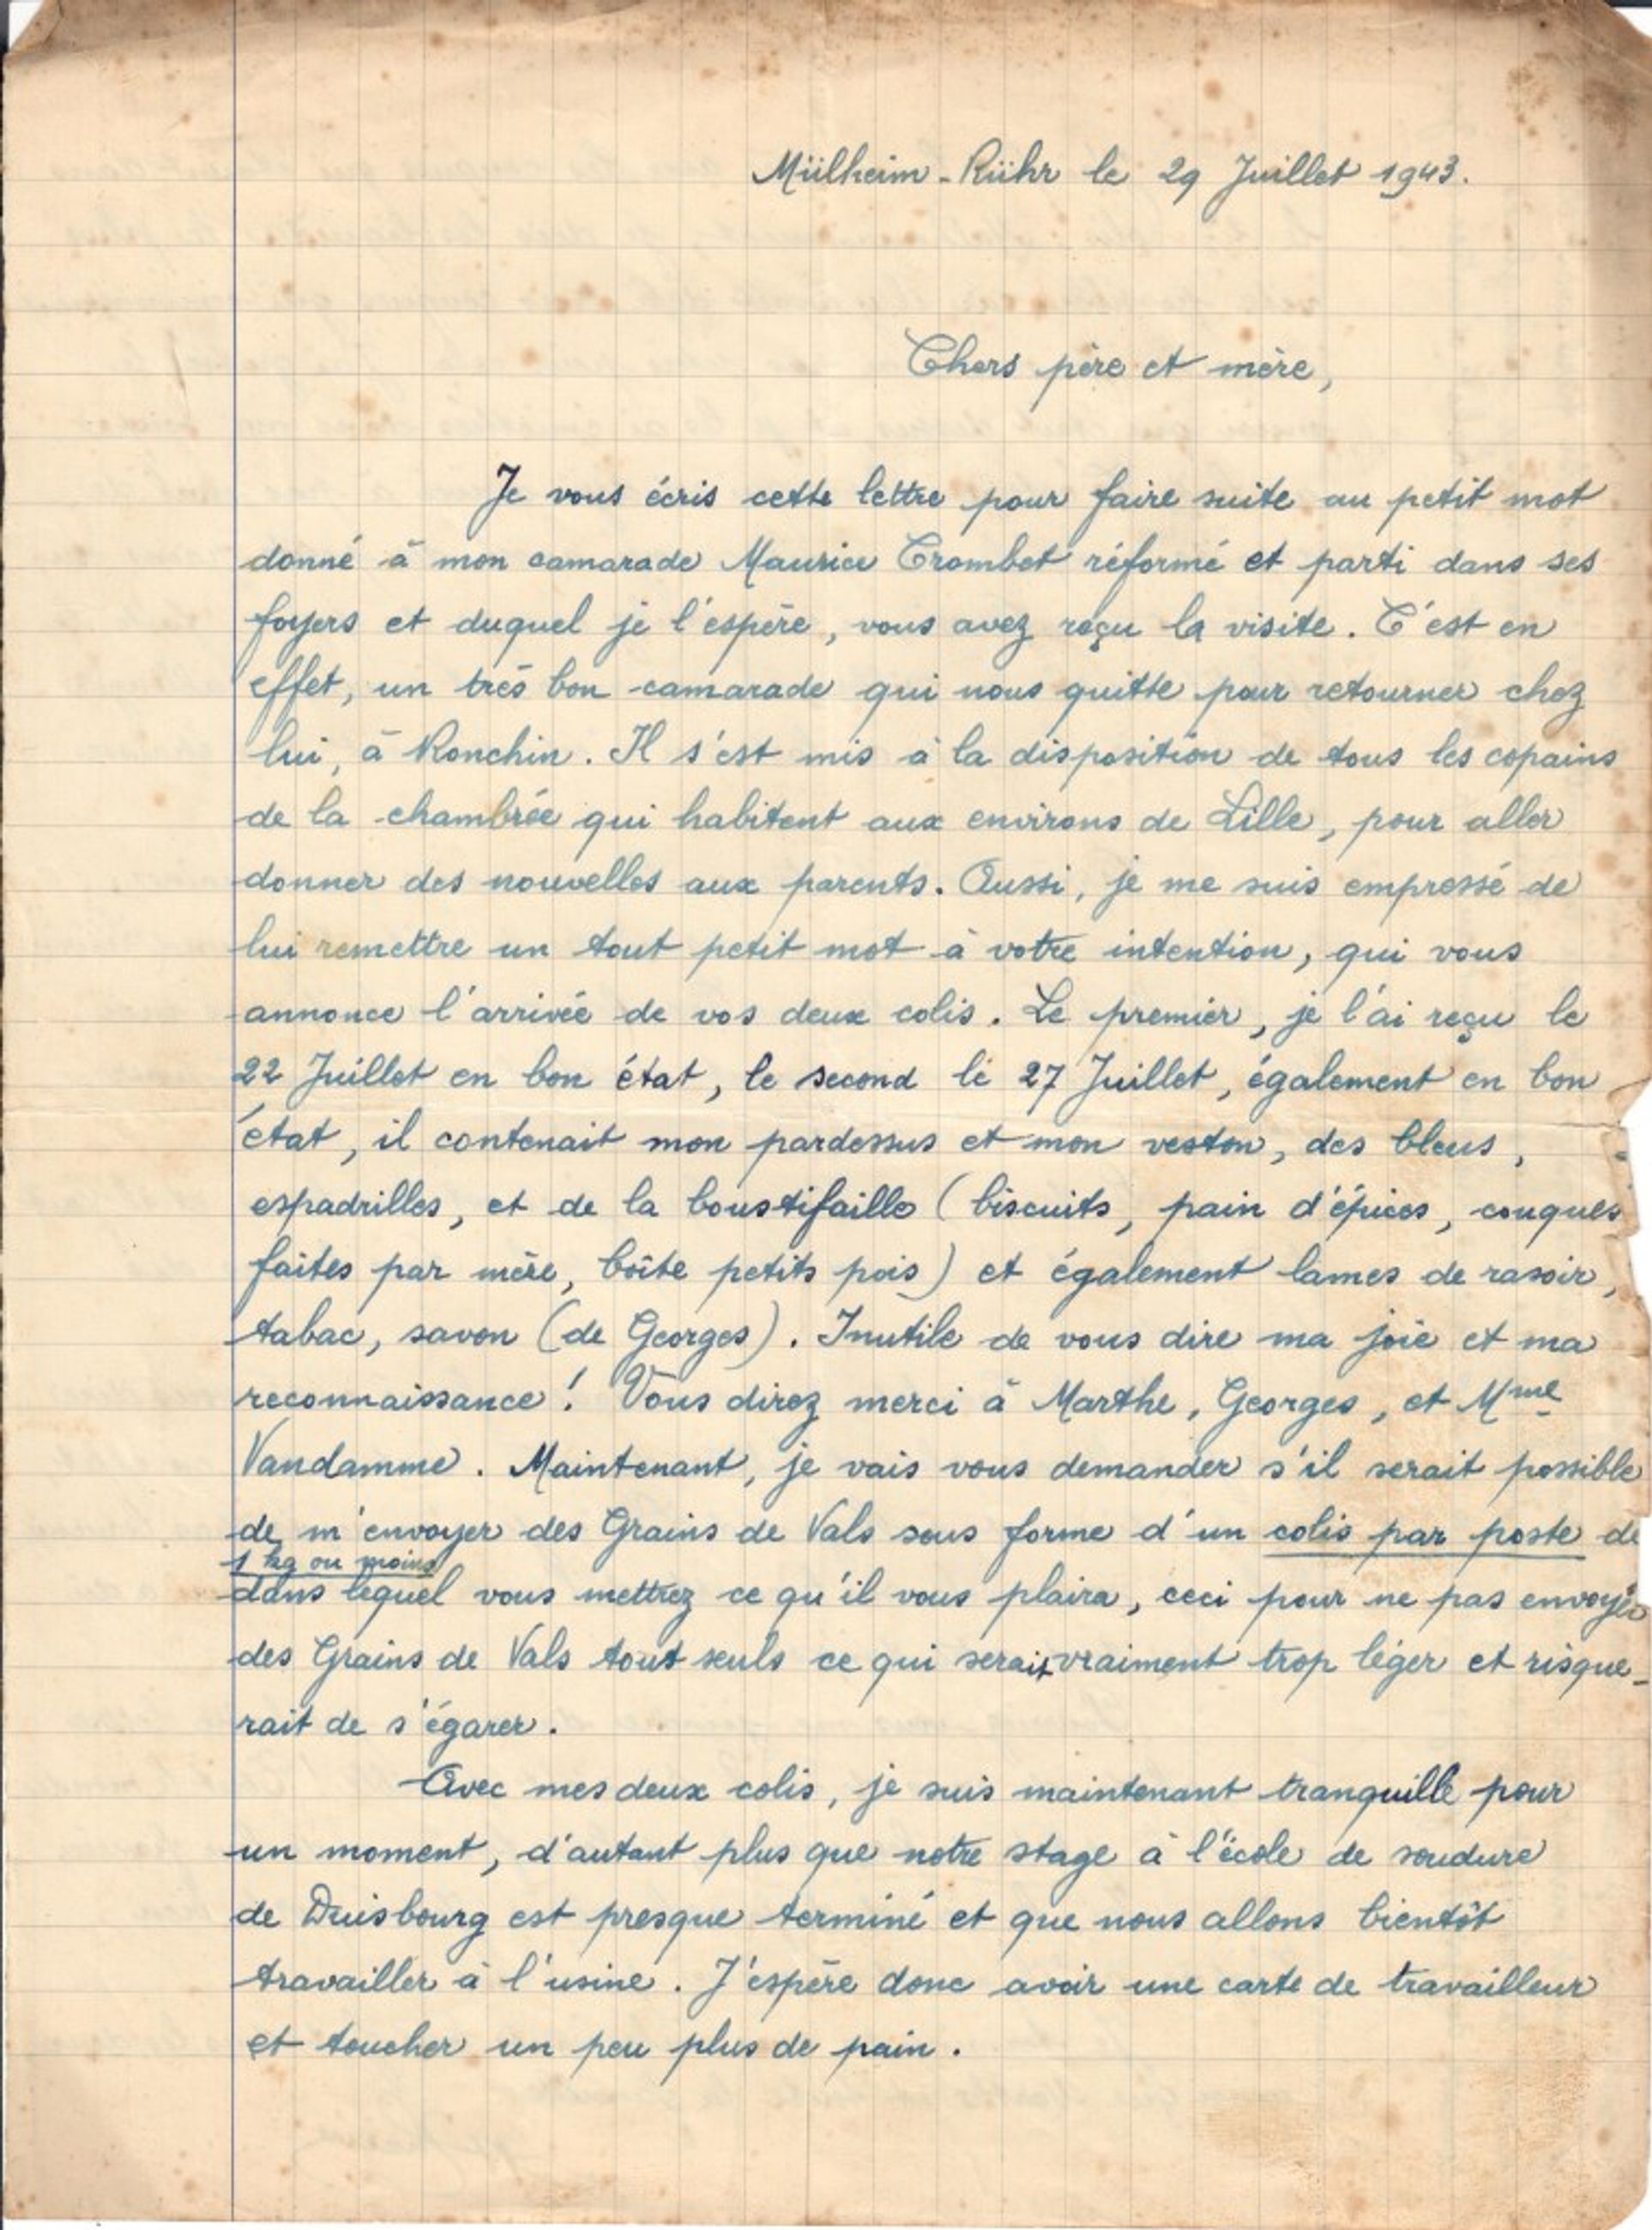 Mülheim-Rühr le 29 Juillet 1943.
Chers père et mère,
Je vous écris cette lettre pour faire suite au petit mot
donné à mon camarade Maurice Crombet réformé et parti dans ses
foyers et duquel je l'espère, vous avez reçu la visite. C'est en
effet, un très bon camarade qui nous quitte pour retourner chez
lui, à Ronchin. Il s'est mis à la disposition de tous les copains
de la chambrée qui habitent aux environs de Lille, pour aller
donner des nouvelles aux parents. Aussi, je me suis empressé de
lui remettre un tout petit mot à votre intention, qui vous
annonce l'arrivée de vos deux colis. Le premier, je l'ai reçu le
22 Juillet en bon état, le second le 27 Juillet, également en bon
état, il contenait mon pardessus et mon veston, des bleus,
espadrilles, et de la boustifaille (biscuits, pain d'épices, couques
faites par mère, boîte petits pois) et également lames de rasoir,
tabac, savon (de Georges). Inutile de vous dire ma joie et ma
reconnaissance! Vous direz merci à Marthe, Georges, et Mme
Vandamme. Maintenant, je vais vous demander s'il serait possible
de m'envoyer des Grains de Vals sous forme d'un colis par poste de
1 kg ou moins
dans lequel vous mettrez ce qu'il vous plaira, ceci pour ne pas envoyer
des Grains de Vals tout seuls ce qui serait vraiment trop léger et risque-
rait de s'égarer.
Avec mes deux colis, je suis maintenant tranquille pour
un moment, d'autant plus que notre stage à l'école de soudure
de Duisbourg est presque terminé et que nous allons bientôt
travailler à l'usine. J'espère donc avoir une carte de travailleur
et toucher un peu plus de pain.